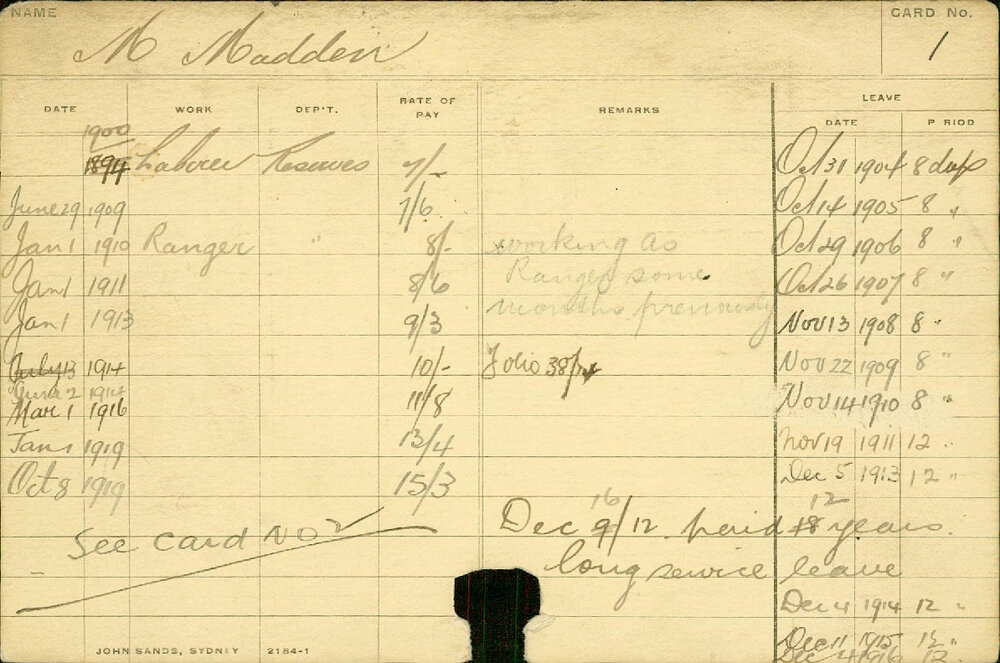 NAME CARD No.
M Madden 1
DATE WORK DEP'T. RATE OF PAY REMARKS LEAVE
DATE P RIOD
1900
1894 Laborer Reserves 7/- Oct 31 1904 8 days
June 29 1909 7/6 Oct 14 1905 8 "
Jan 1 1910 Ranger " 8/- working as Oct 29 1906 8 "
Jan 1 1911 8/6 Ranger some Oct 26 1907 8 "
Jan 1 1913 9/3 months previously Nov 13 1908 8 "
July 13 1914 10/- Folio 38/14 Nov 22 1909 8 "
June 2 1914
Mar 1 1916 11/8 Nov 14 1910 8 "
Jan 1 1919 13/4 Nov 19 1911 12 "
Oct 8 1919 15/3 Dec 5 1913 12 "
16 12
See card No 2 Dec 9/12 paid 18 years
long service leave
Dec 4 1914 12 "
Dec 11 1915 12 "
Dec 4 1916 12
JOHN SANDS, SYDNEY 2184-1